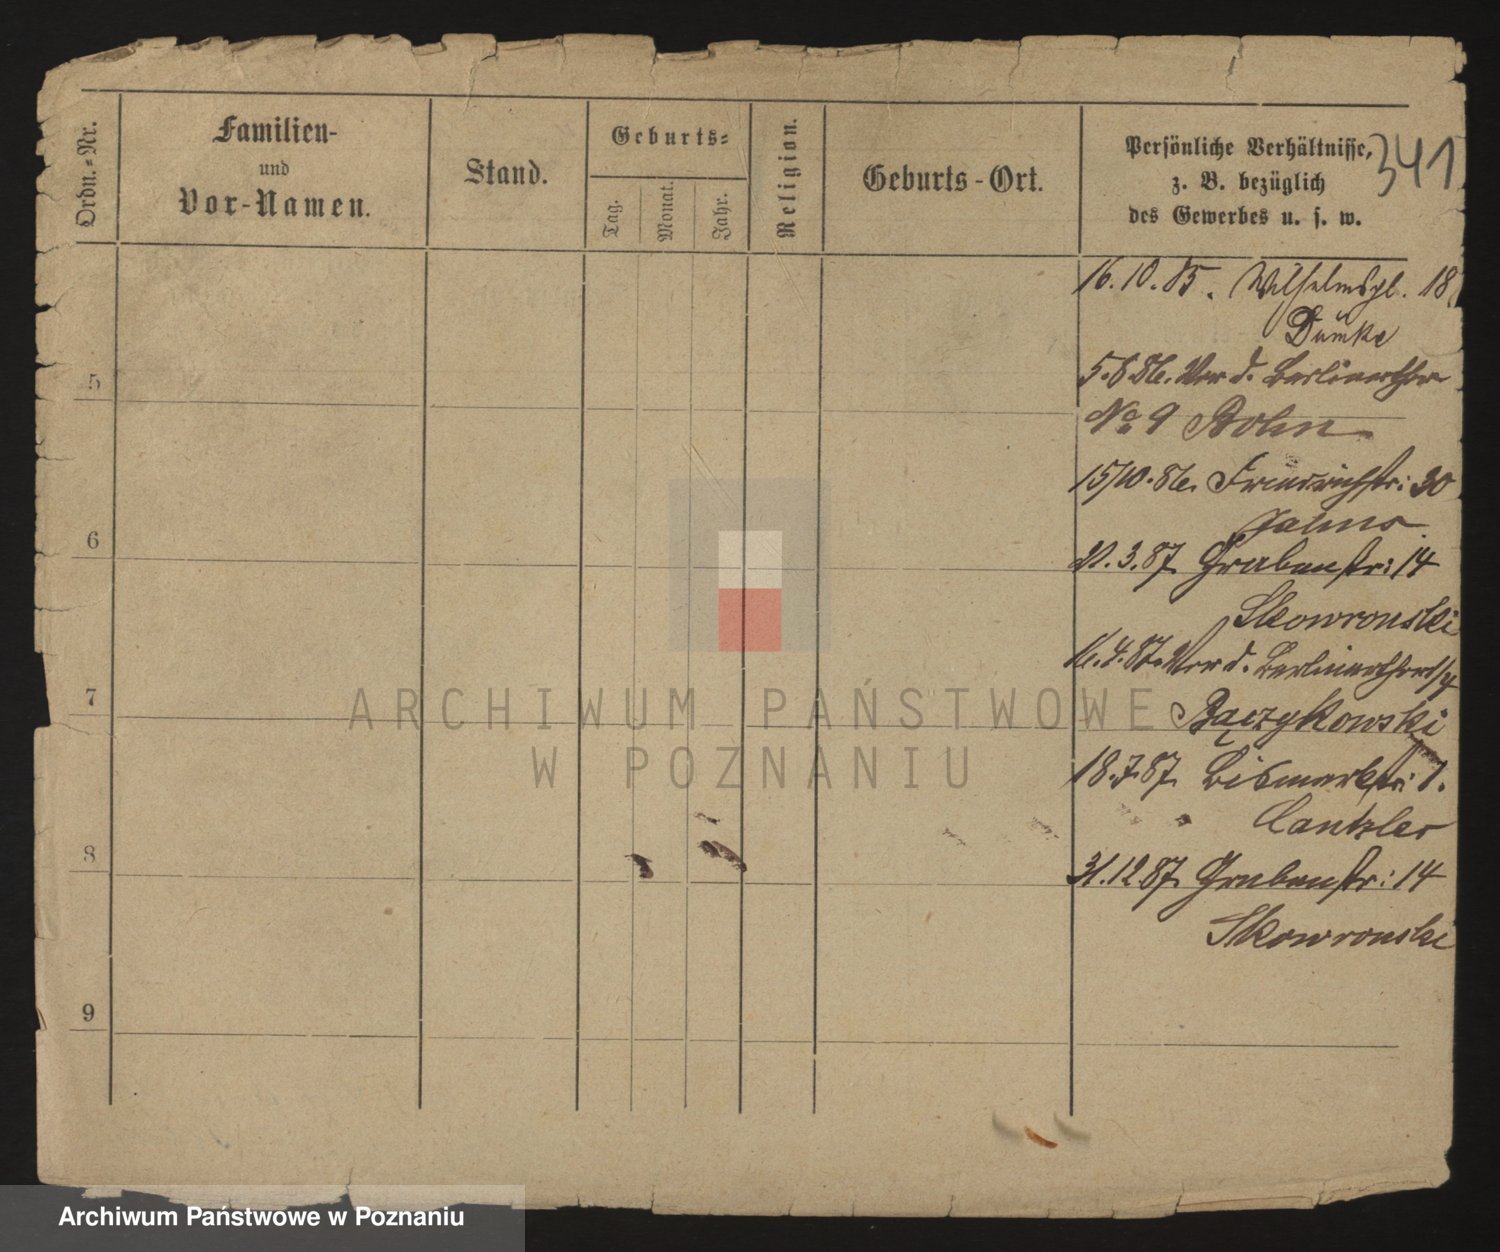 Ordn.-Nr.
Familien-
und
Vor-Namen.
Stand.
Geburts-
Tag.
Monat.
Jahr.
Religion.
Geburts-Ort.
Persönliche Verhältnisse,
z. B. bezüglich
des Gewerbes u. s. w.
341
16.10.85. Wilhelmspl. 18
Dümke
5.8.86. Vor d. Berlinerthor
5
No 9 Bohn
15/10.86. Friedrichstr: 30
6
21.3.87. Grabenstr: 14
Skowronski
16.4.87. Vor d. Berlinerthor
7
Bączykowski
18.7.87. Bismarkstr: 7.
Cantzler
8
31.12.87. Grabenstr: 14
Skowronski
9
ARCHIWUM PAŃSTWOWE
W POZNANIU
Archiwum Państwowe w Poznaniu